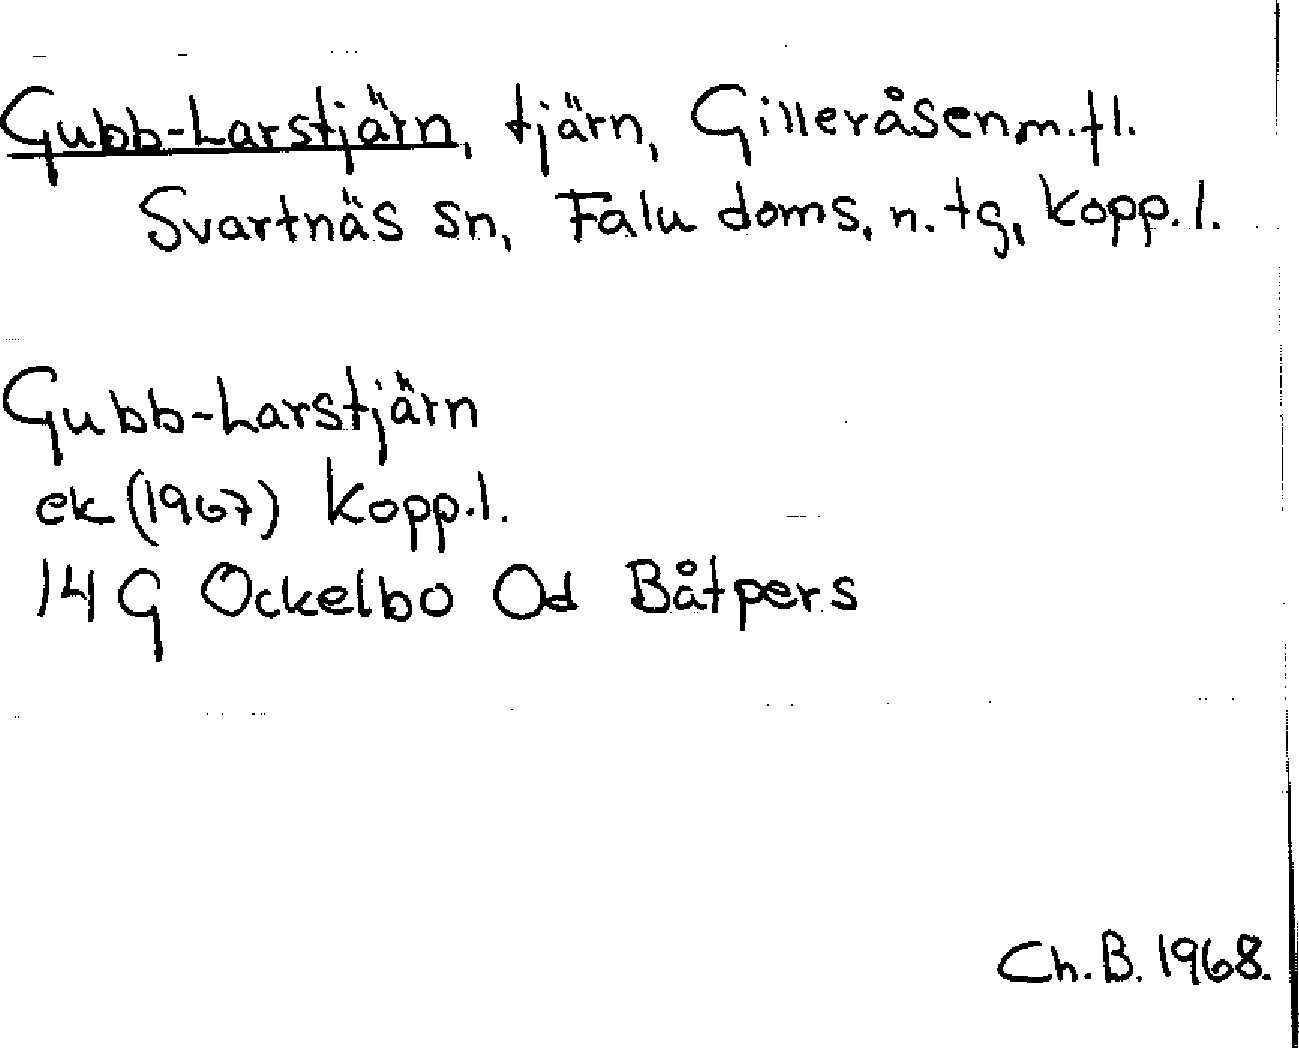 Gubb-Larstjärn, tjärn, Gilleråsen m.fl.
Svartnäs sn, Falu doms. n. tg, Kopp. l.
Gubb-Larstjärn
ek (1967) Kopp. l.
14 G Ockelbo Od Båtpers
Ch. B. 1968.